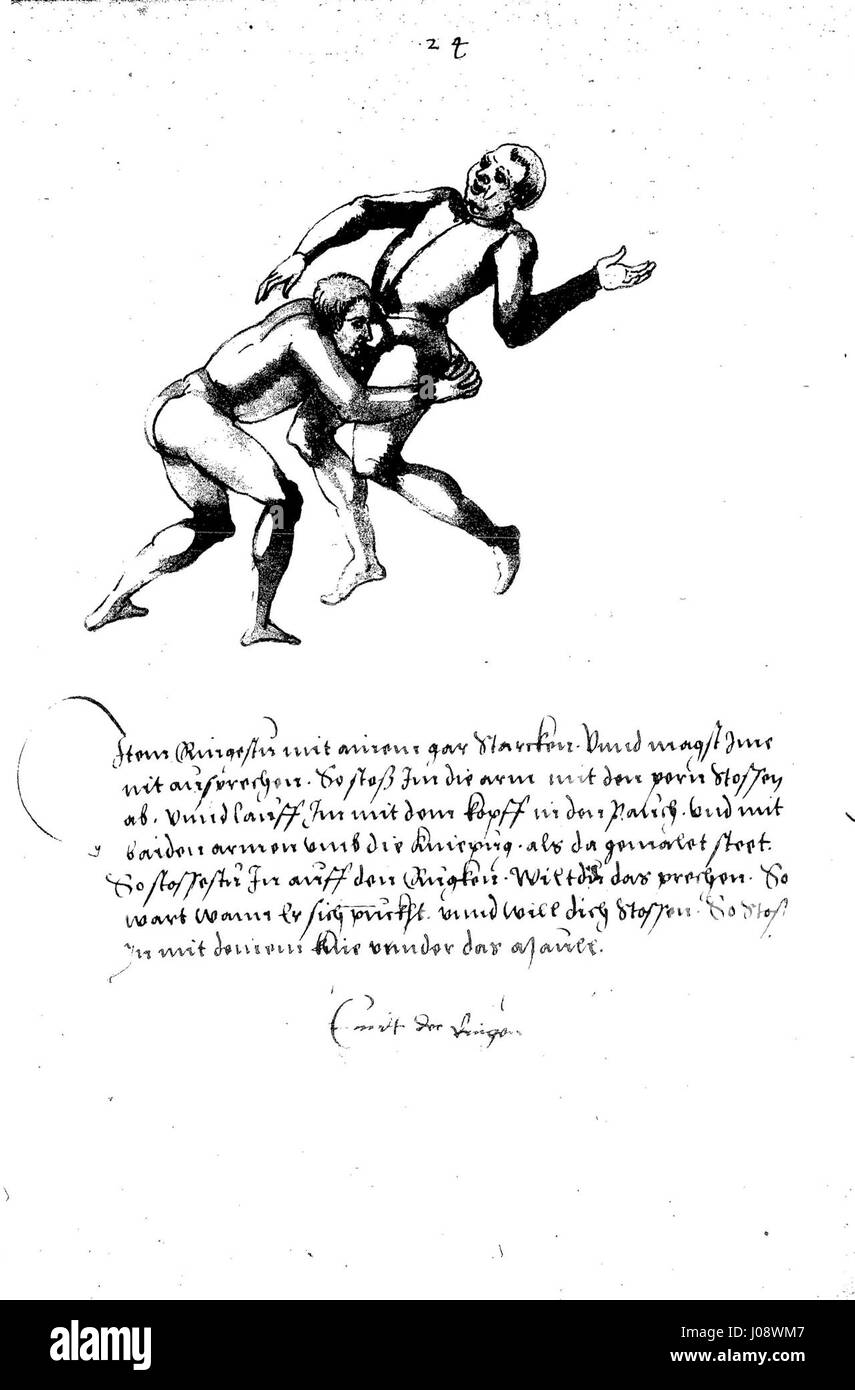 24
Item Ringestu mit ainem gar Starcken. Vnnd magst Ime
nit aussprechen. So stoß Im die arm mit den pern Stossen
ab. vnnd lauff Im mit dem kopff in den Pauch. vnd mit
baiden armen vmb die Kniepüg. als da gemalet steet.
So stossestu In auff den Rugken. Wiltdus das prechen. So
wart wann Er sich puckht. vnnd will dich Stossen. So Stos
In mit deinem knie vnnder das Maull.
mit der
alamy stock photo
J08WM7
www.alamy.com